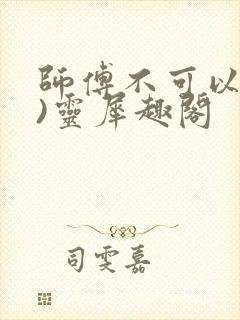 師傅不可以
)靈犀趣閣
司雯嘉